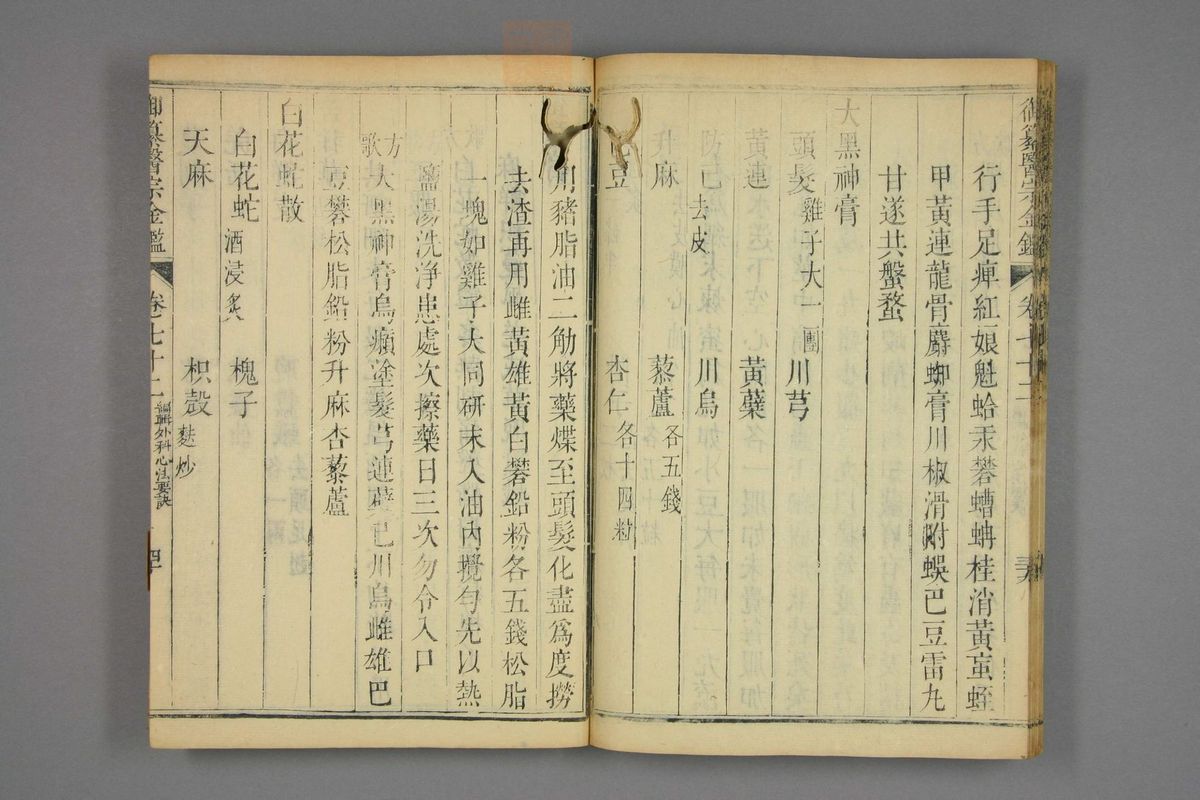 御纂醫宗金鑑 卷七十二
行手足痺紅娘魁蛤汞礬螬蝟桂消黃䖟蛭
甲黃連龍骨麝蜘膏川椒滑附蜈巴豆雷丸
甘遂共盤蝥
大黑神膏
頭髮雞子大一團 川芎
黃連 黃蘗
防巳去皮 川烏
升麻 藜蘆各五錢
豆 杏仁各十四粒
用豬脂油二觔將藥煠至頭髮化盡爲度撈
去渣再用雌黃雄黃白礬鉛粉各五錢松脂
一塊如雞子大同研末入油內攪勻先以熱
鹽湯洗淨患處次擦藥日三次勿令入口
方歌大黑神膏烏癩塗髮芎連蘗巳川烏雌雄巴
豆礬松脂鉛粉升麻杏藜蘆
白花蛇散
白花蛇酒浸炙 槐子
天麻 枳殼麩炒
御纂醫宗金鑑 卷七十二 編輯外科心法要訣